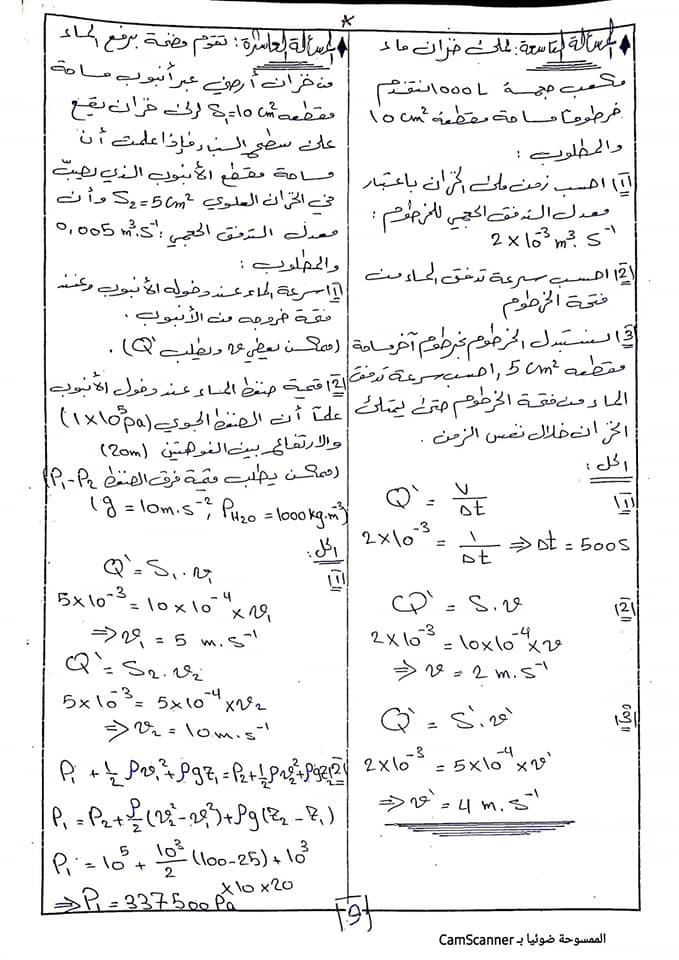 المسألة التاسعة: لملئ خزان ماء
مكعب حجمه 1000L نستخدم
خرطوماً مساحة مقطعه 10 cm²
والمطلوب:
1) احسب زمن ملئ الخزان باعتبار
معدل التدفق الحجمي للخرطوم:
2×10⁻³ m³.S⁻¹
2) احسب سرعة تدفق الماء من
فتحة الخرطوم
3) نستبدل الخرطوم بخرطوم آخر مساحة
مقطعه 5 cm²، احسب سرعة تدفق
الماء من فتحة الخرطوم حتى يمتلئ
الخزان خلال نفس الزمن.
الحل:
1) Q` = V/Δt
2×10⁻³ = 1/Δt ⇒ Δt = 500S
2) Q` = S.v
2×10⁻³ = 10×10⁻⁴×v
⇒ v = 2 m.S⁻¹
3) Q` = S`.v`
2×10⁻³ = 5×10⁻⁴×v`
⇒ v` = 4 m.S⁻¹
المسألة العاشرة: تقوم مضخة برفع الماء
من خزان أرضي عبر أنبوب مساحة
مقطعه S₁=10 cm² إلى خزان يقع
على سطح البناء، فإذا علمت أن
مساحة مقطع الأنبوب الذي يصبّ
في الخزان العلوي S₂=5cm² وأن
معدل التدفق الحجمي: 0,005 m³.S⁻¹
والمطلوب:
1) سرعة الماء عند دخوله الأنبوب وعند
نقطة خروجه من الأنبوب.
(ممكن يعطي v ويطلب Q`)
2) قيمة ضغط الماء عند دخول الأنبوب
علماً أن الضغط الجوي (1×10⁵pa)
والارتفاع بين الفوهتين (20m)
(ممكن يطلب قيمة فرق الضغط P₁-P₂)
(g = 10m.S⁻², ρH₂O = 1000kg.m⁻³)
الحل:
1) Q` = S₁.v₁
5×10⁻³ = 10×10⁻⁴×v₁
⇒ v₁ = 5 m.S⁻¹
Q` = S₂.v₂
5×10⁻³ = 5×10⁻⁴×v₂
⇒ v₂ = 10m.S⁻¹
2) P₁ + ½ρv₁² + ρgz₁ = P₂ + ½ρv₂² + ρgz₂
P₁ = P₂ + ρ/2 (v₂² - v₁²) + ρg(z₂ - z₁)
P₁ = 10⁵ + 10³/2 (100-25) + 10³
×10×20
⇒ P₁ = 337500Pa
9
الممسوحة ضوئيا بـ CamScanner